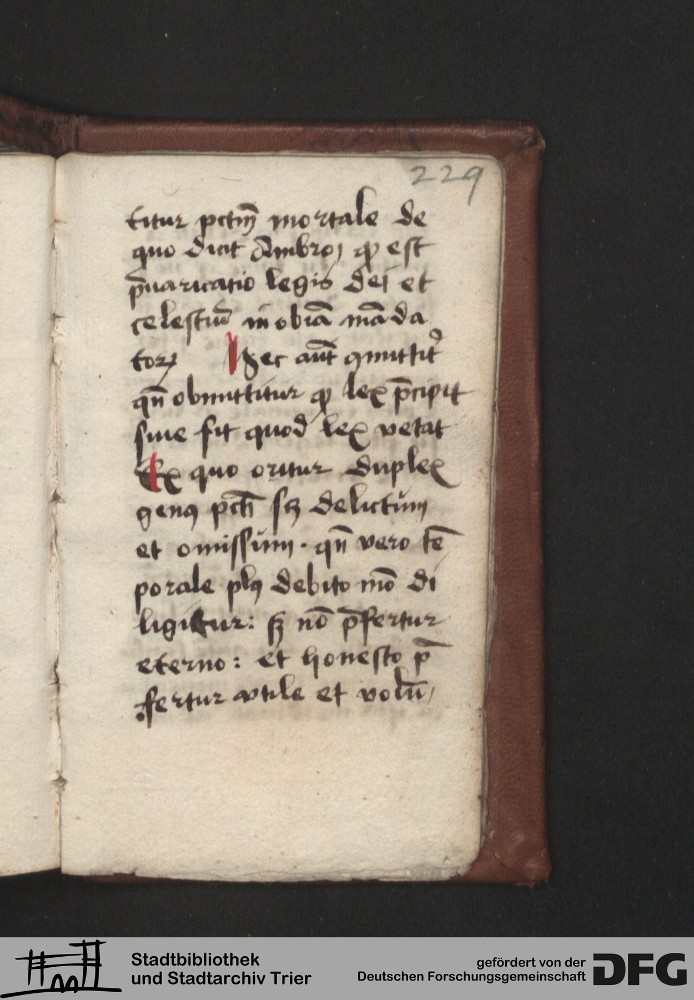 229
titur pctm̄ mortale de
quo dicit Ambro ꝙ est
p̄uaricatio legis dei et
celestiū inobiā māda
toꝝ Hec aūt ꝯmittit᷑
qn̄ obmittitur ꝙ lex p̄cipit
siue fit quod lex vetat
Ex quo oritur duplex
genꝰ pcti sꝫ delictum
et omissum . qn̄ vero tē
porale plꝰ debito mō di
ligitur : sꝫ nō p̄fertur
eterno : et honesto p̄
fertur vtile et
Stadtbibliothek
und Stadtarchiv Trier
gefördert von der
Deutschen Forschungsgemeinschaft
DFG